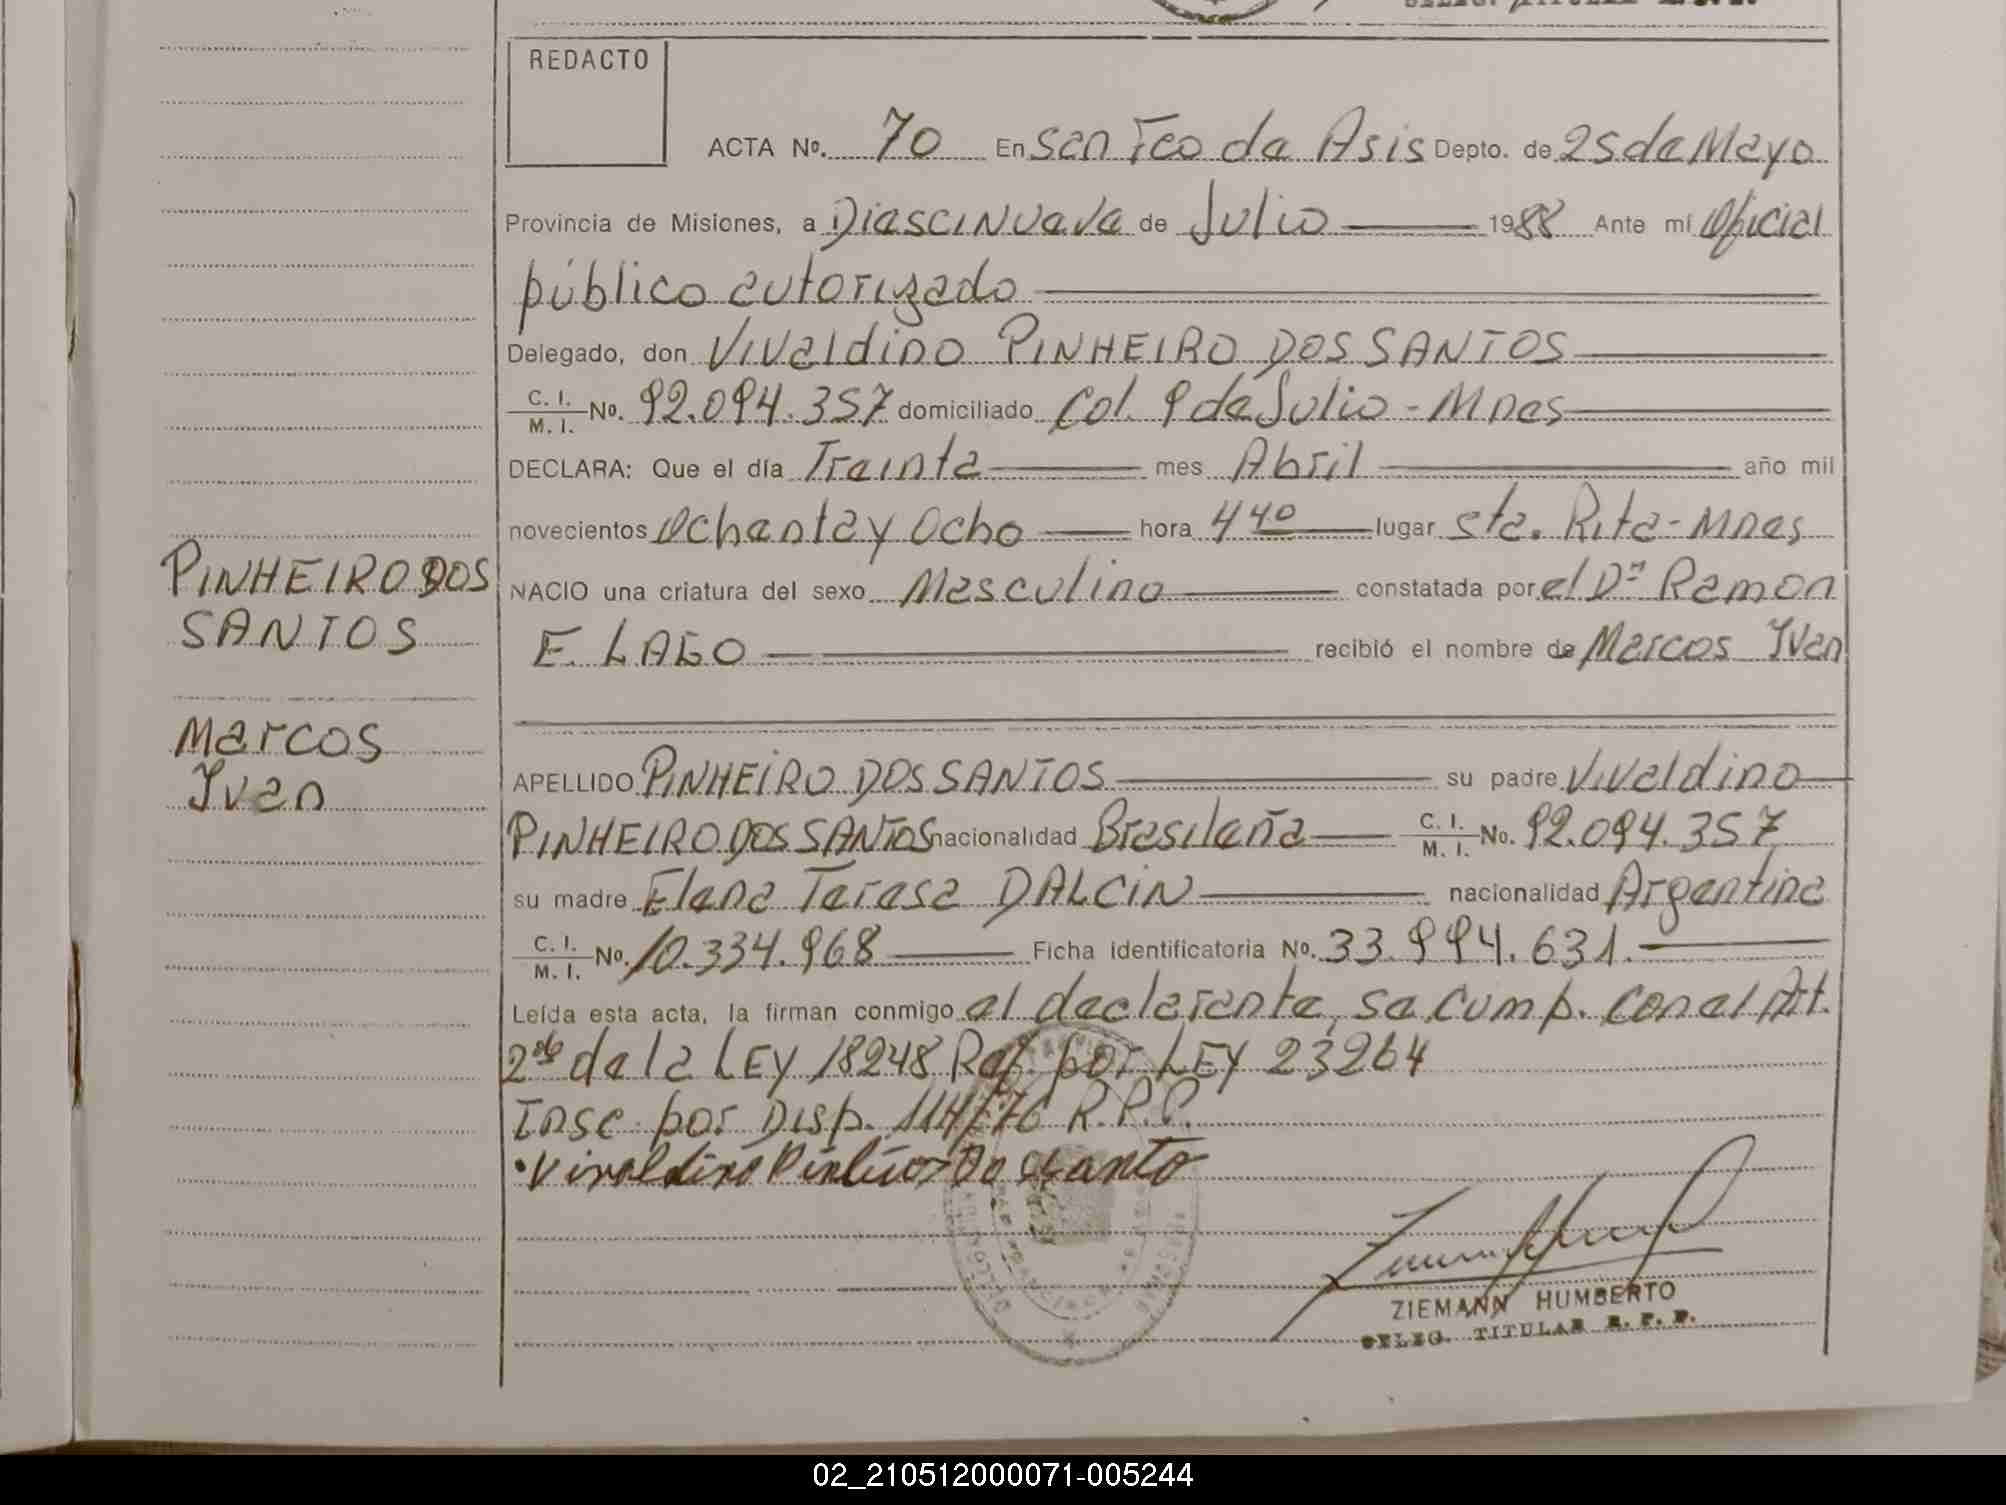 REDACTO
ACTA Nº. 70 En San Fco de Asis Depto. de 25 de Mayo
Provincia de Misiones, a Diescinueve de Julio 1988 Ante mí Oficial
público autorizado
Delegado, don Vivaldino PINHEIRO DOS SANTOS
C. I. / M. I. No. 92.094.357 domiciliado Col. 9 de Julio - Mnes
DECLARA: Que el día Treinta mes Abril año mil
novecientos Ochenta y Ocho hora 4 40 lugar Sta. Rita - Mnes
PINHEIRO DOS
SANTOS
Marcos
Ivan
NACIO una criatura del sexo Masculino constatada por el Dr Ramon
E. LAGO recibió el nombre de Marcos Ivan
APELLIDO PINHEIRO DOS SANTOS su padre Vivaldino
PINHEIRO DOS SANTOS nacionalidad Brasileña C. I. / M. I. No. 92.094.357
su madre Elena Teresa DALCIN nacionalidad Argentina
C. I. / M. I. No. 10.334.968 Ficha identificatoria No. 33.994.631.
Leída esta acta, la firman conmigo el declarante, se cump. con el Art.
2do de la LEY 18248 Ref. por LEY 23264
Insc. por Disp. 114/76 R.P.P.
Vivaldino
ZIEMANN HUMBERTO
DELEG. TITULAR R. P. P.
02_210512000071-005244